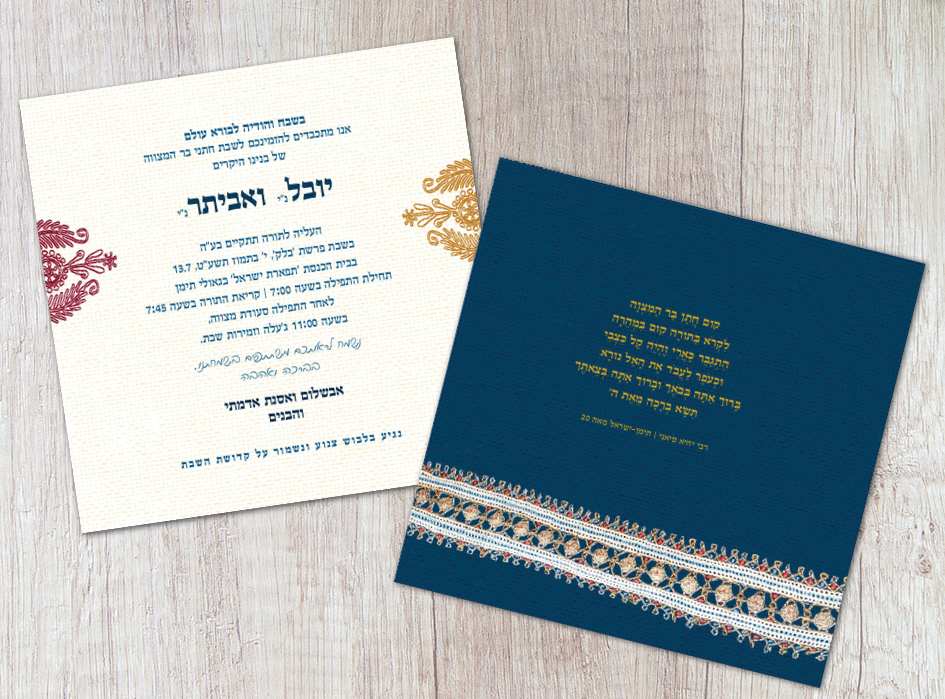 בשבח והודיה לבורא עולם
אנו מתכבדים להזמינכם לשבת חתני בר המצווה
של בנינו היקרים
יובל נ"י ואביתר נ"י
העליה לתורה תתקיים בע"ה
בשבת פרשת 'בלק', י' בתמוז תשע"ט, 13.7
בבית הכנסת 'תפארת ישראל' בגאולי תימן
תחילת התפילה בשעה 7:00 | קריאת התורה בשעה 7:45
לאחר התפילה סעודת מצווה,
בשעה 11:00 ג'עלה וזמירות שבת.
נשמח לראותכם משתתפים בשמחתנו,
בברכה ואהבה
אבשלום ואסנת אדמתי
והבנים
נגיע בלבוש צנוע ונשמור על קדושת השבת
קום חֲתַן בַּר הַמִּצְוָה
לִקְרֹא בַּתּוֹרָה קוּם בִּמְהֵרָה
הִתְגַּבֵּר כָּאֲרִי וֶהְיֵה קַל כַּצְּבִי
וּכְעֹפֶר לַעֲבֹד אֶת הָאֵל נוֹרָא
בָּרוּךְ אַתָּה בְּבֹאֶךָ וּבָרוּךְ אַתָּה בְּצֵאתֶךָ
תִּשָּׂא בְרָכָה מֵאֵת ה'
רבי יחיא סיאני | תימן-ישראל מאה 20